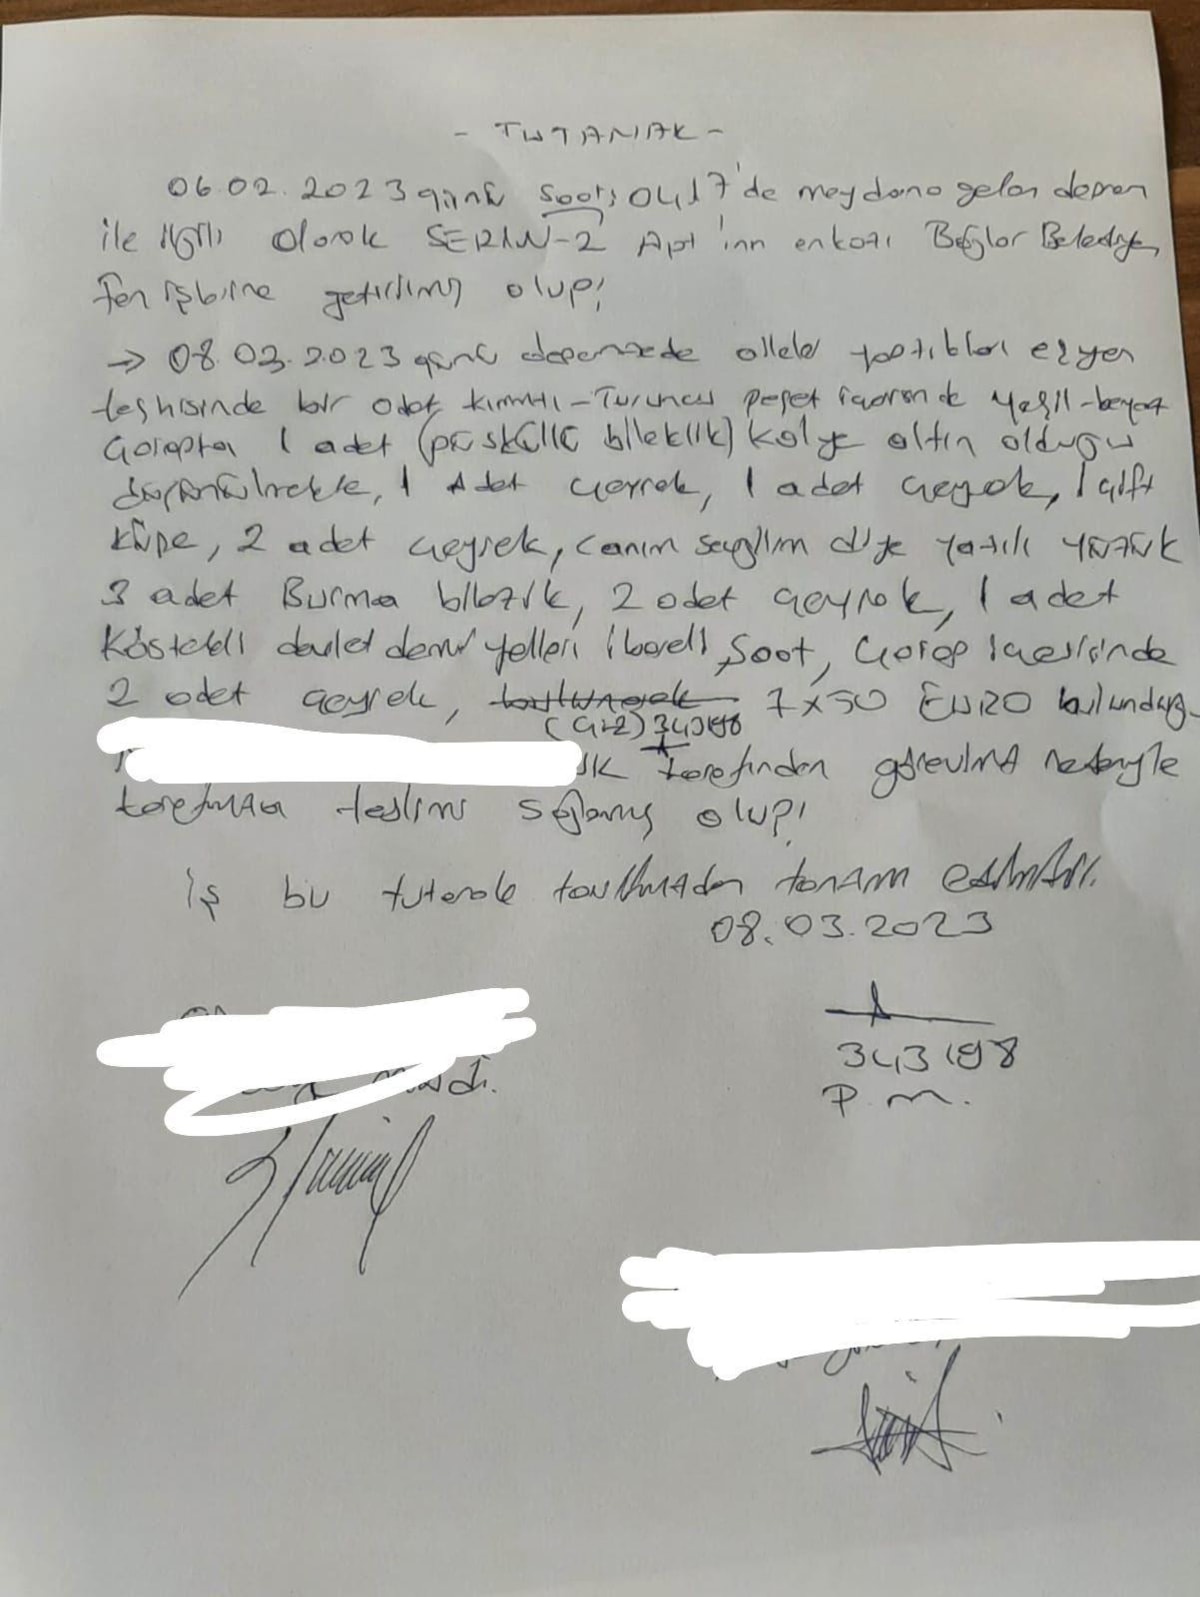 - TUTANAK -
06.02.2023 günü saat: 04:17'de meydana gelen deprem
ile ilgili olarak SERİN-2 Apt'ının enkazı Bağlar Belediye
Fen işlerine getirilmiş olup;
→ 08.03.2023 günü depremzede aileler yaptıkları eşyen
teşhisinde bir adet kırmızı-Turuncu poşet içerisinde yeşil-beyaz
çorapta 1 adet (püsküllü bileklik) kolye altın olduğu
düşünülmekte, 1 Adet çeyrek, 1 adet çeyrek, 1 çift
küpe, 2 adet çeyrek, canım sevgilim diye yazılı yüzük
3 adet Burma bilezik, 2 adet çeyrek, 1 adet
Köstekli devlet demir yolları ibareli saat, çorap içerisinde
2 adet çeyrek, 7x50 EURO bulunduğu
343198
tarafından görevlimiz nedeniyle
tarafımıza teslimi sağlamış olup;
İş bu tutanak tarafımızdan tanzim edilmiştir.
08.03.2023
343198
P.m.